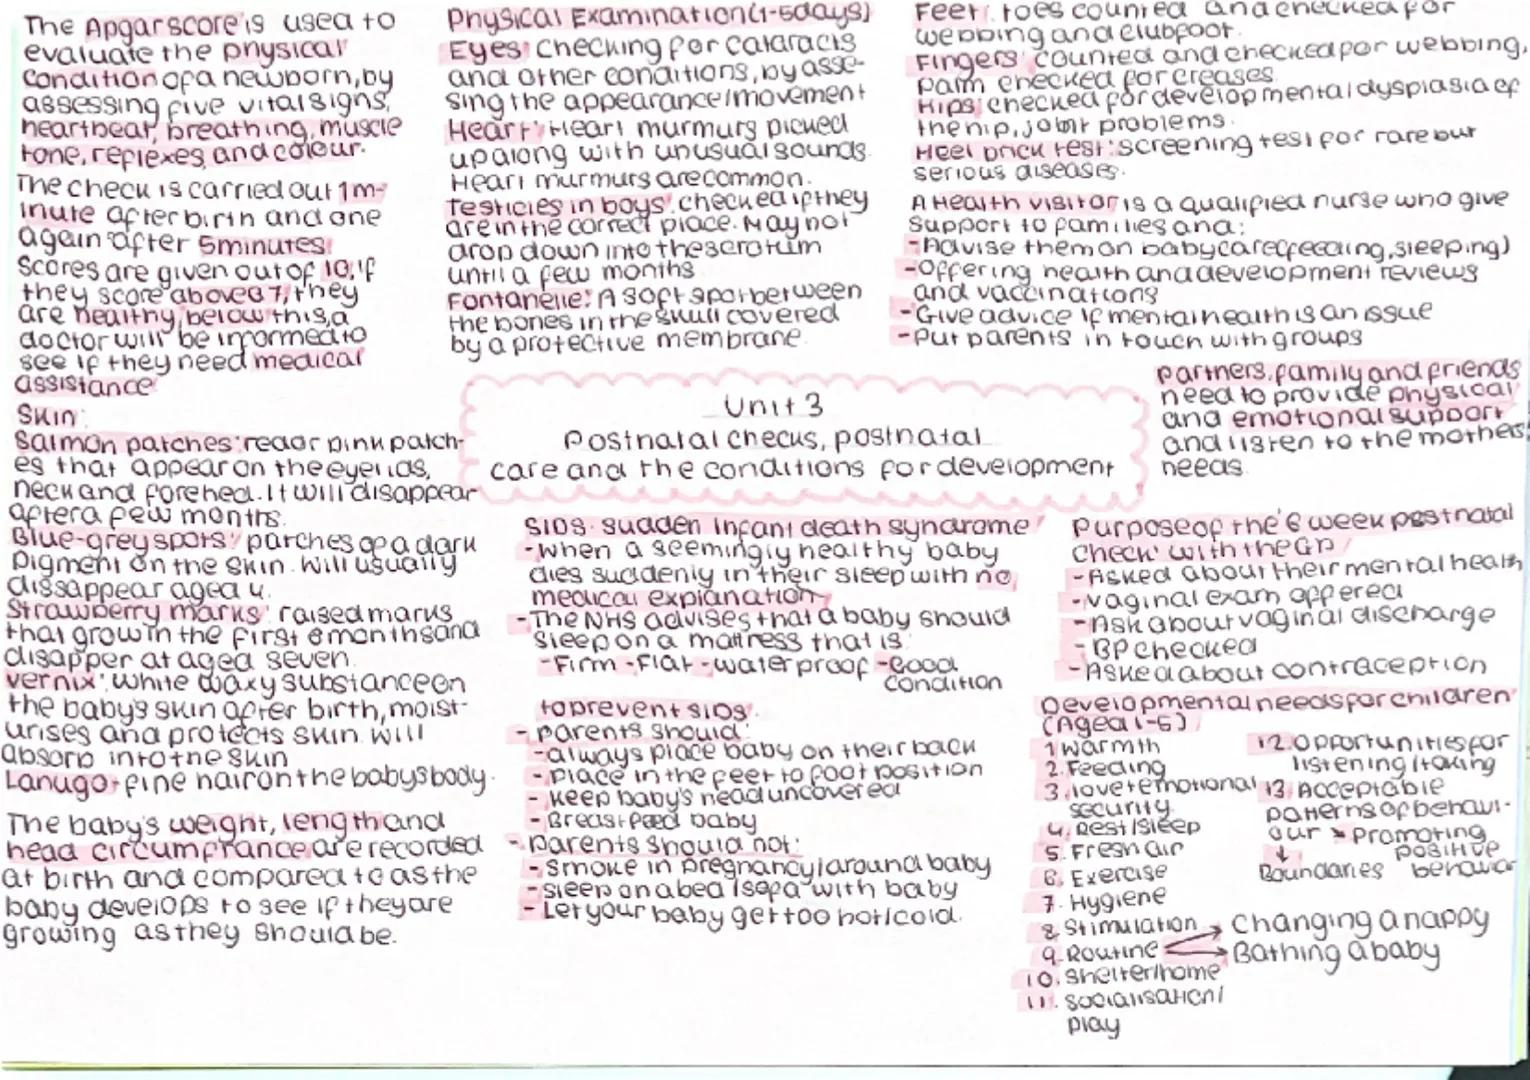 The Apgar score is used to
evaluate the physical
condition of a newborn, by
assessing five vital signs,
heartbeat, breathing, muscle
tone, reflexes and colour.
The check is carried out 1 m-
inute after birth and one
again after 5 minutes
Scores are given out of 10, if
they score above a 7, they
are healthy, below this, a
doctor will be informed to
see if they need medical
assistance
Skin:
Salmon patches: red or pink patch-
es that appear on the eyelids,
neck and forehead. It will disappear
after a few months.
Blue-grey spots: patches of a dark
pigment on the skin. Will usually
dissappear aged 4.
Strawberry marks: raised marks
that grow in the first 6 months and
disapper at aged seven.
Vernix: white waxy substance on
the baby's skin after birth, moist-
urises and protects skin. Will
absorb into the skin
Lanugo: fine hair on the babys body.
The baby's weight, length and
head circumfrance are recorded
at birth and compared to as the
baby develops to see if they are
growing as they should be.
Physical Examination (1-5 days)
Eyes: Checking for cataracts
and other conditions, by asse-
sing the appearance/movement
Heart: Heart murmurs picked
up along with unusual sounds.
Heart murmurs are common.
Testicles in boys: checked if they
are in the correct place. May not
drop down into the scrotum
until a few months
Fontanelle: A soft spot between
the bones in the skull covered
by a protective membrane.
Feet: toes counted and checked for
webbing and clubfoot.
Fingers: counted and checked for webbing,
palm checked for creases
Hips: checked for developmental dysplasia of
the hip, joint problems.
Heel prick test: screening test for rare but
serious diseases.
A Health visitor is a qualified nurse who give
support to families and:
-Advise them on babycare (feeding, sleeping)
-Offering health and development reviews
and vaccinations
-Give advice if mental health is an issue
-Put parents in touch with groups
partners, family and friends
need to provide physical
and emotional support
and listen to the mothers
needs.
Unit 3
Postnatal checks, postnatal
care and the conditions for development
SIDS: sudden infant death syndrome
-When a seemingly healthy baby
dies suddenly in their sleep with no
medical explanation
-The NHS advises that a baby should
sleep on a mattress that is:
-Firm -Flat -waterproof -Good
condition
to prevent SIDS:
- parents should:
-always place baby on their back
- place in the feet to foot position
- keep baby's head uncovered
- Breastfeed baby
- parents should not:
- smoke in pregnancy/around baby
- sleep on a bed/sofa with baby
- Let your baby get too hot/cold.
Purpose of the 6 week postnatal
check: with the GP
- Asked about their mental health
- vaginal exam offered
- Ask about vaginal discharge
- BP checked
- Asked about contraception
Developmental needs for children
(Aged 1-5)
1 warmth
2. Feeding
3. love+emotional
security
4. Rest/sleep
5. Fresh air
6. Exercise
7. Hygiene
8. Stimulation
9. Routine
Changing a nappy
Bathing a baby
10. shelter/home
11. Socialisation/
play
12. Opportunities for
listening/talking
13. Acceptable
patterns of behavi-
our → promoting
positive
behavior
↓
Boundaries